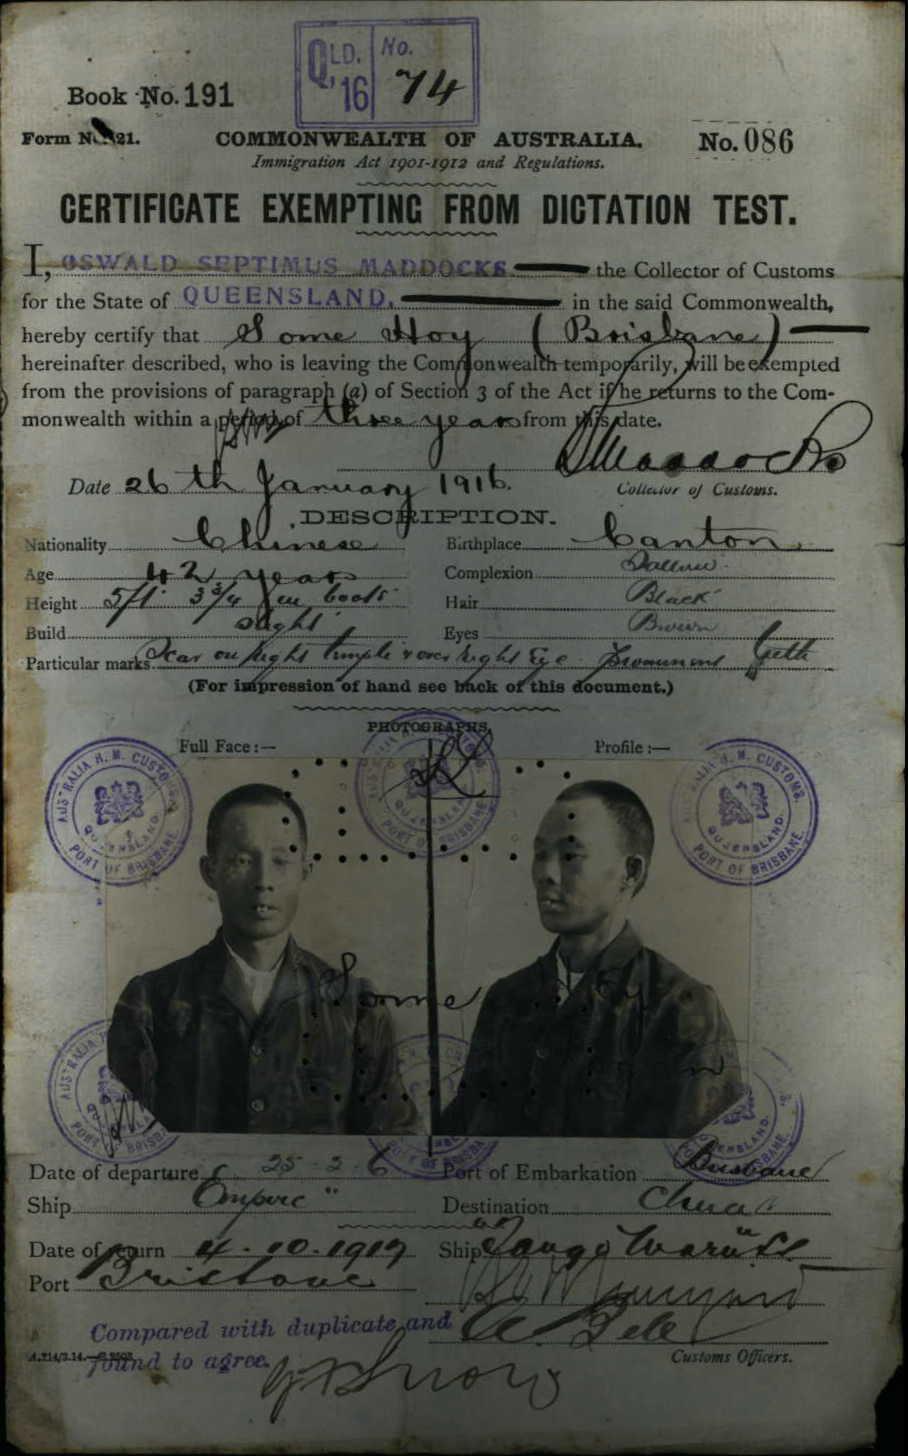 QLD. No.
'16 74
Book No. 191
Form No. 21. COMMONWEALTH OF AUSTRALIA. No. 086
Immigration Act 1901-1912 and Regulations.
CERTIFICATE EXEMPTING FROM DICTATION TEST.
I, OSWALD SEPTIMUS MADDOCKS the Collector of Customs
for the State of QUEENSLAND, in the said Commonwealth,
hereby certify that Some Hoy (Brisbane)
hereinafter described, who is leaving the Commonwealth temporarily, will be exempted
from the provisions of paragraph (a) of Section 3 of the Act if he returns to the Com-
monwealth within a period of three years from this date.
Maddocks
Date 26th January 1916. Collector of Customs.
DESCRIPTION.
Nationality Chinese Birthplace Canton
Age 42 years Complexion Sallow
Height 5ft 3 3/4 in boots Hair Black
Build Slight Eyes Brown
Particular marks Scar on Right temple & over Right Eye Prominent Teeth
(For impression of hand see back of this document.)
PHOTOGRAPHS.
Full Face :— Profile :—
AUSTRALIA H. M. CUSTOMS. QUEENSLAND. PORT OF BRISBANE
Some Hoy
Date of departure 25-2-6 Port of Embarkation Brisbane
Ship Empire" Destination China
Date of return 4.10.1917 Ship
Port Brisbane
Compared with duplicate and
found to agree.
Customs Officers.